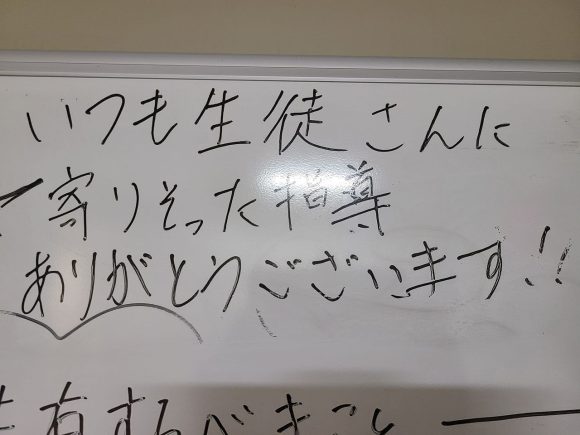 いつも生徒さんに
寄りそった指導
ありがとうございます!!
有するべきこと